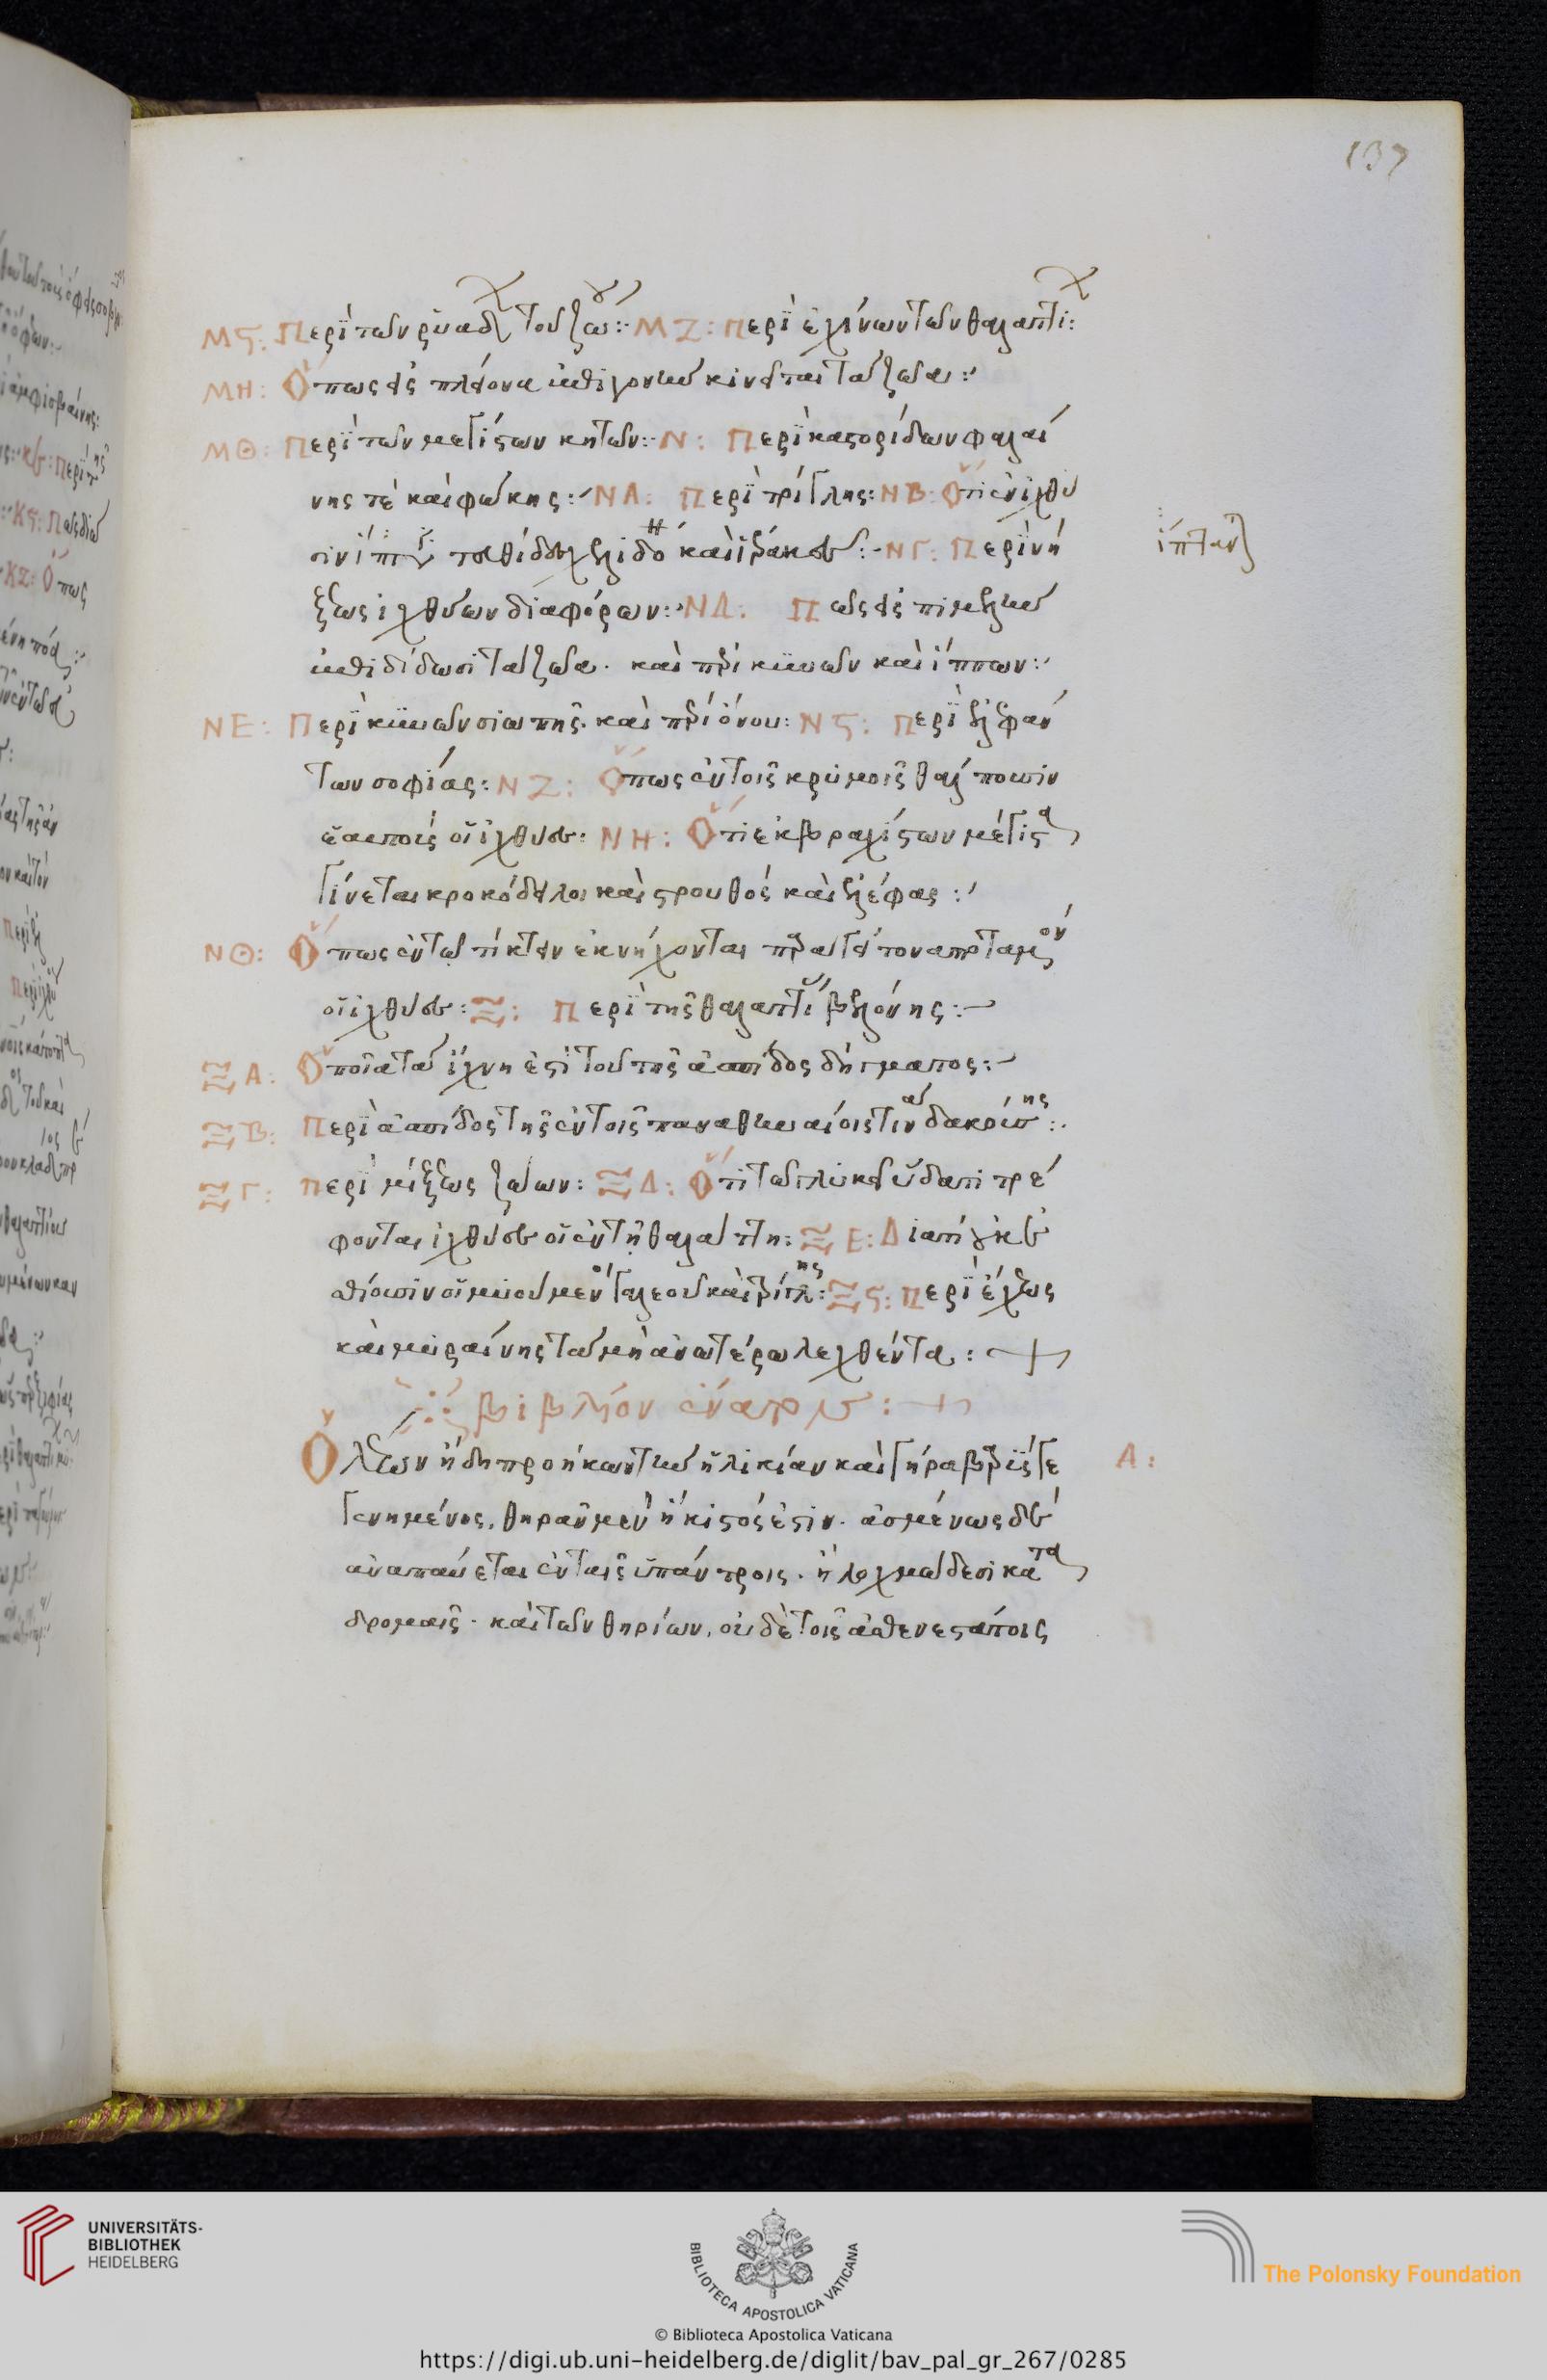 137
ΜϚ: Περὶ τῶν ῥυάδ τοῦ ζώου:· ΜΖ: Περὶ ἐχίνων τῶν θαλαττί:
ΜΗ: Ὅπως εἰς πλείονα ἐπιγονὴν κινεῖται τὰ ζῶα:·
ΜΘ: Περὶ τῶν μεγίστων κητῶν:· Ν: Περὶ καστορίδων φαλαί
νης τὲ καὶ φώκης:· ΝΑ: Περὶ τρίγλης: ΝΒ: Ὅτι ἐν ἰχθύ
σιν καὶ ἱέρακες:· ΝΓ: Περὶ νή
ξεως ἰχθύων διαφόρων:· ΝΔ: Πῶς εἰς πιμελὴν
ἐπιδίδωσι τὰ ζῶα. καὶ περὶ κυνῶν καὶ ἵππων:·
ΝΕ: Περὶ κυνῶν σιωπῆς. καὶ περὶ ὄνου: ΝϚ: Περὶ ἐλεφάν
των σοφίας: ΝΖ: Ὅπως ἐν τοῖς κρυμοῖς θάλπουσιν
ἑαυτοὺς οἱ ἰχθύες: ΝΗ: Ὅτι ἐκ βραχίστων μέγιστα
γίνεται κροκόδειλοι καὶ στρουθὸς καὶ ἐλέφας:·
ΝΘ: Ὅπως ἐν τῶ τίκτειν ἐκνήχονται
οἱ ἰχθύες: Ξ: Περὶ τῆς θαλαττί βελόνης:·
ΞΑ: Ὁποῖα τὰ ἴχνη ἐστὶ τοῦ τῆς ἀσπίδος δήγματος:·
ΞΒ: Περὶ ἀσπίδος τῆς ἐν τοῖς
ΞΓ: Περὶ μίξεως ζώων: ΞΔ: Ὅτι τῶ γλυκεῖ ὕδατι τρέ
φονται ἰχθύες οἱ ἐν τῆ θαλάττη: ΞΕ: Διατί γκὲ
σθίουσιν οἱ μυούμεν γαλεοῦ καὶ τρίγλης: ΞϚ: Περὶ ἔχεως
καὶ μυραίνης τὰ μὴ ἀνωτέρω λεχθέντα:
βιβλίον ἔνατον:
Ὁ λέων ἤδη προήκων τὴν ἡλικίαν καὶ γήρα βαρὺς γε Α:
γενημένος, θηρᾶν μὲν ἥκιστός ἐστιν. ἀσμένως δὲ
ἀναπαύεται ἐν ταῖς ὑπάντροις. ἢ λοχμώδεσι κατα
δρομαῖς. καὶ τῶν θηρίων, οὐδὲ τοῖς ἀσθενεστάτοις
UNIVERSITÄTS-
BIBLIOTHEK
HEIDELBERG
BIBLIOTECA APOSTOLICA VATICANA
The Polonsky Foundation
© Biblioteca Apostolica Vaticana
https://digi.ub.uni-heidelberg.de/diglit/bav_pal_gr_267/0285